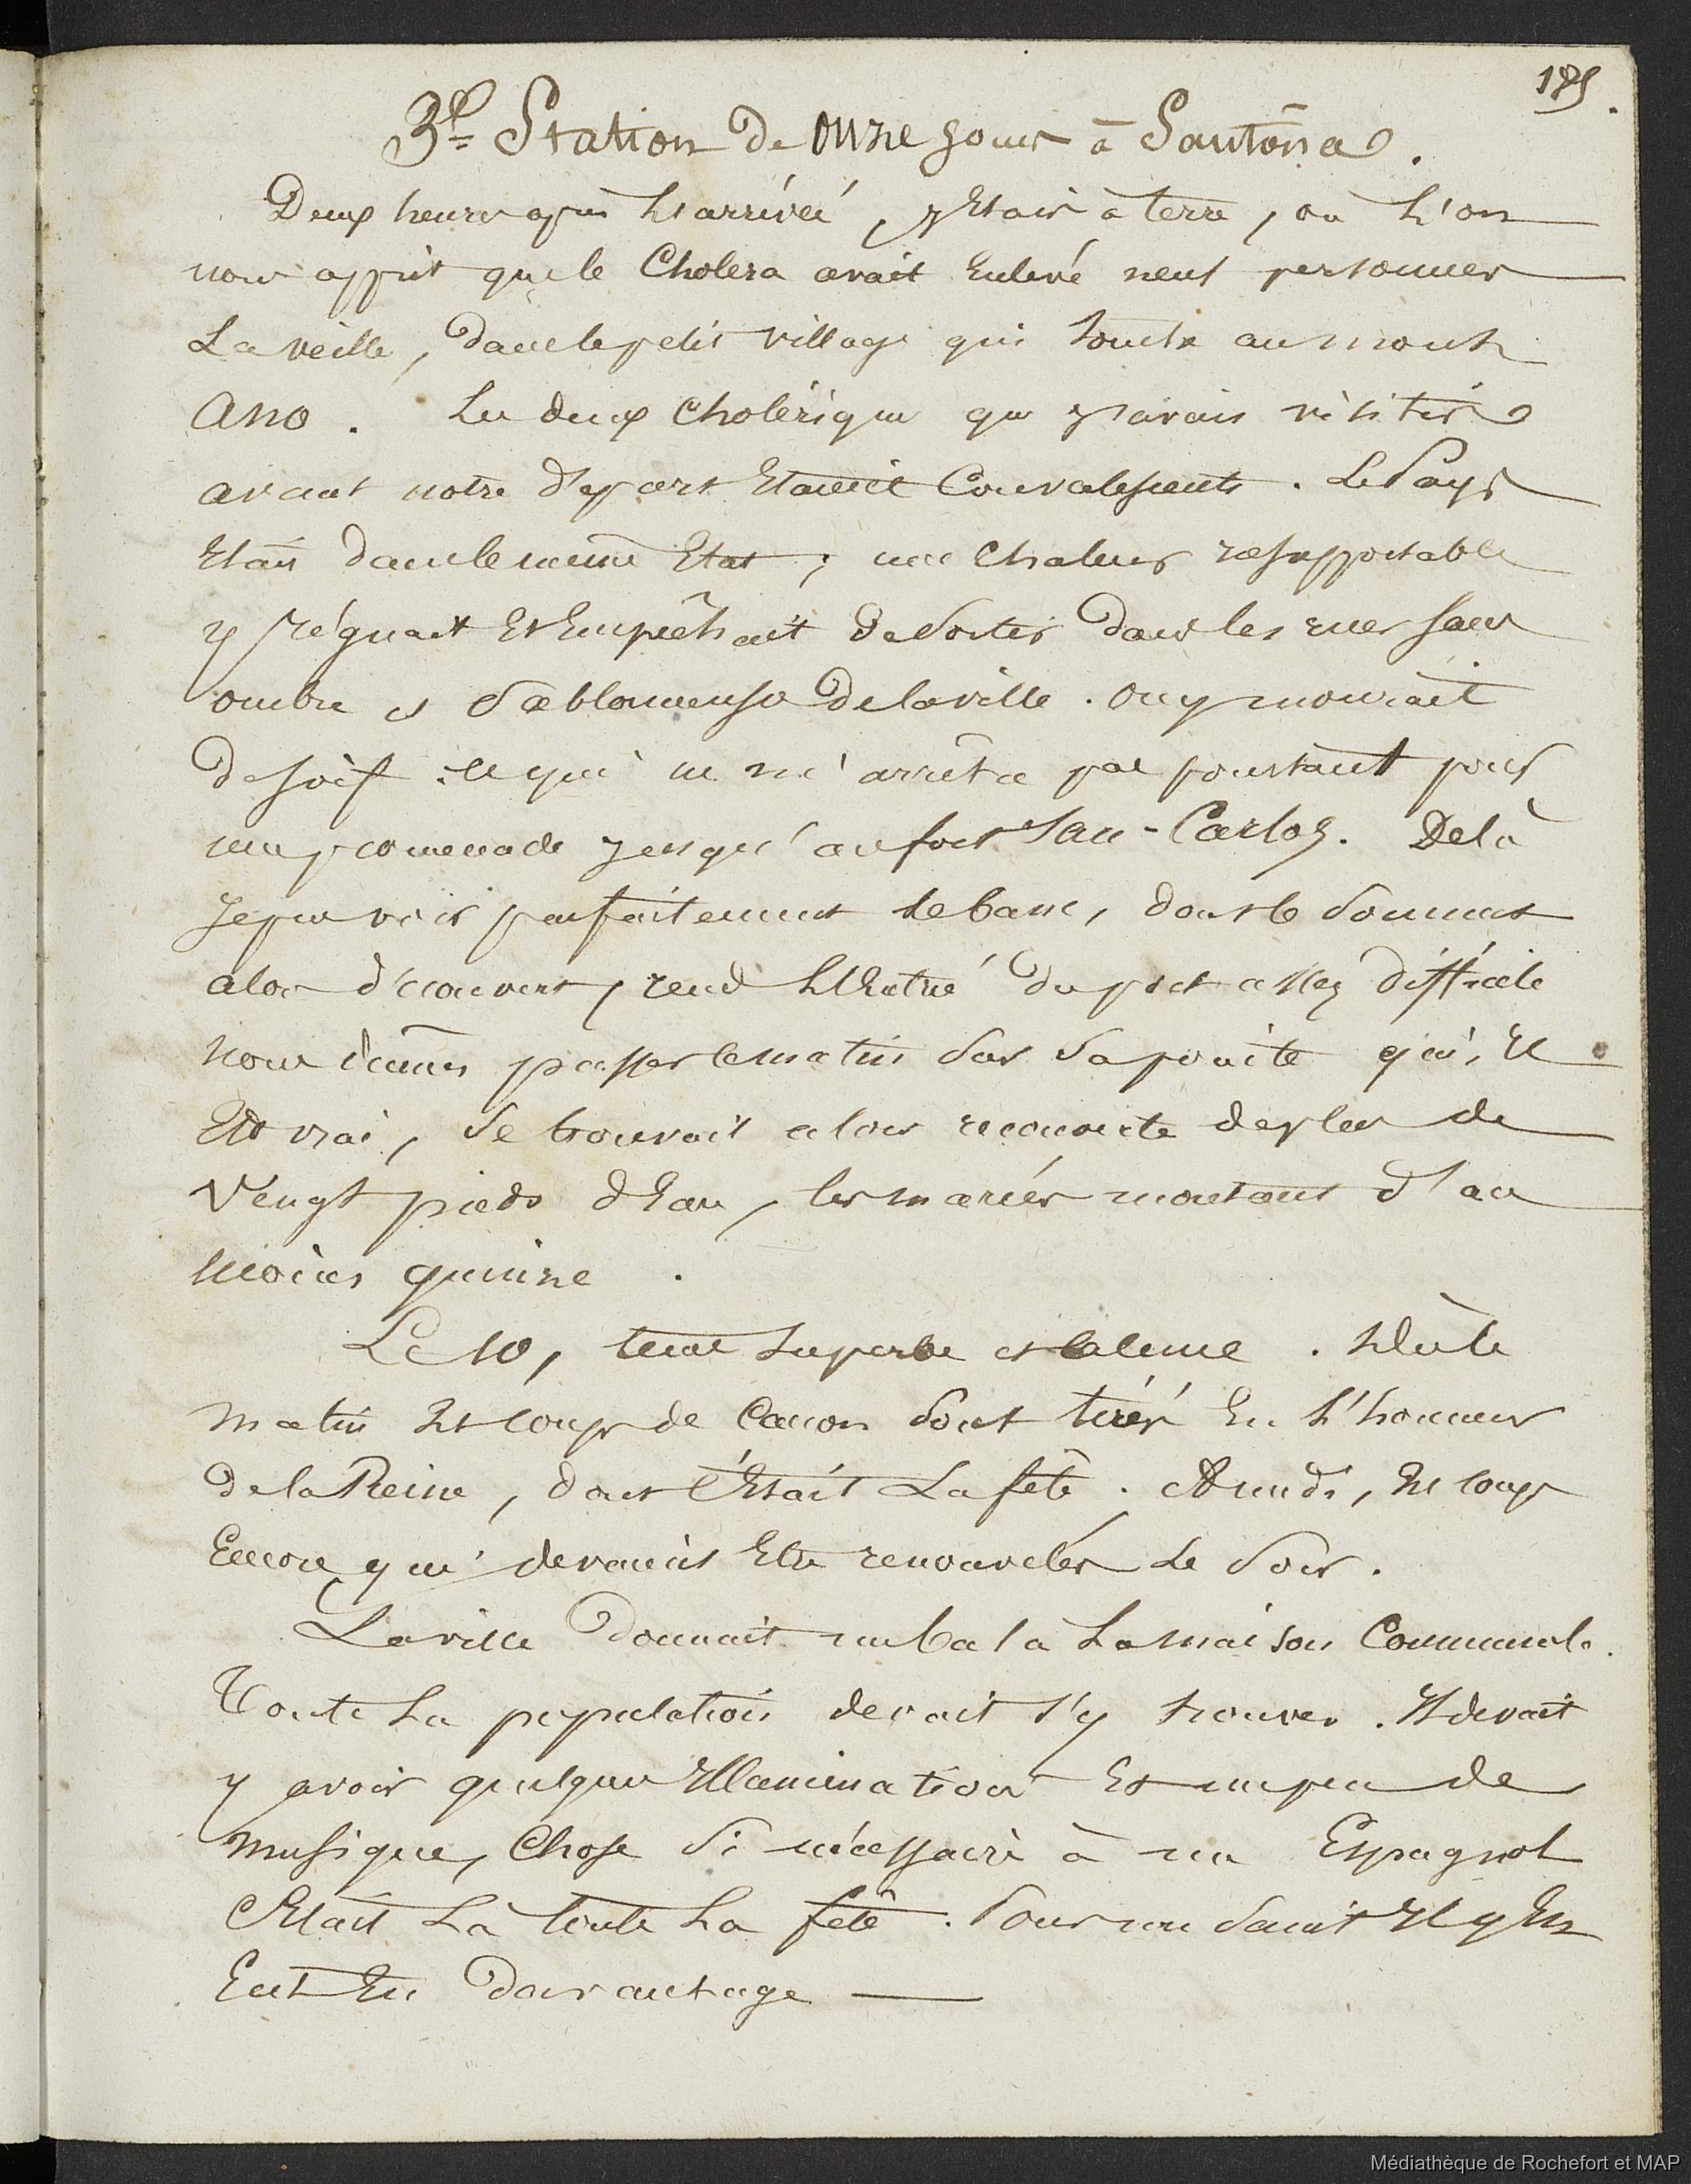 185.
3e Station de onze jours à Santôna.
Deux heures après l'arrivée, j'étais à terre, où l'on
nous apprit que le Cholera avait Enlevé neuf personnes
La veille, dans le petit village qui touche au mont
Ano. Les deux Cholériques que j'avais visités
avant notre départ Etaient Convalescents. Le Pays
Etait dans le même Etat ; une Chaleur insupportable
y régnait Et Empêchait de Sortir dans les rues sans
ombre et Sablonneuses de la ville. On y mourait
de soif : ce qui ne m'arrêta pas pourtant pour
une promenade jusqu'au fort San-Carlos. De là
je pus voir parfaitement le banc, dont le Sommet
alors découvert, rend l'Entrée du port assez difficile
Nous étions passés le matin Sur Sa pointe qui, Il
Est vrai, Se trouvait alors recouverte de plus de
Vingt pieds d'Eau, les marées montant d'au
Moins quinze.
Le 10, tems Superbe et Calme. Dès le
matin 21 coups de Canon Sont tirés En l'honneur
de la Reine, dont c'Etait La fête. A midi, 21 coups
Encore qui devaient Etre renouvelés Le Soir.
La ville donnait un bal à La maison Communale.
Toute La population devait s'y trouver. Il devait
y avoir quelques Illuminations Et un peu de
musique, Chose Si nécessaire à un Espagnol
C'Etait Là toute La fête. Pour un Saint Il y En
Eut Eu davantage —
Médiathèque de Rochefort et MAP